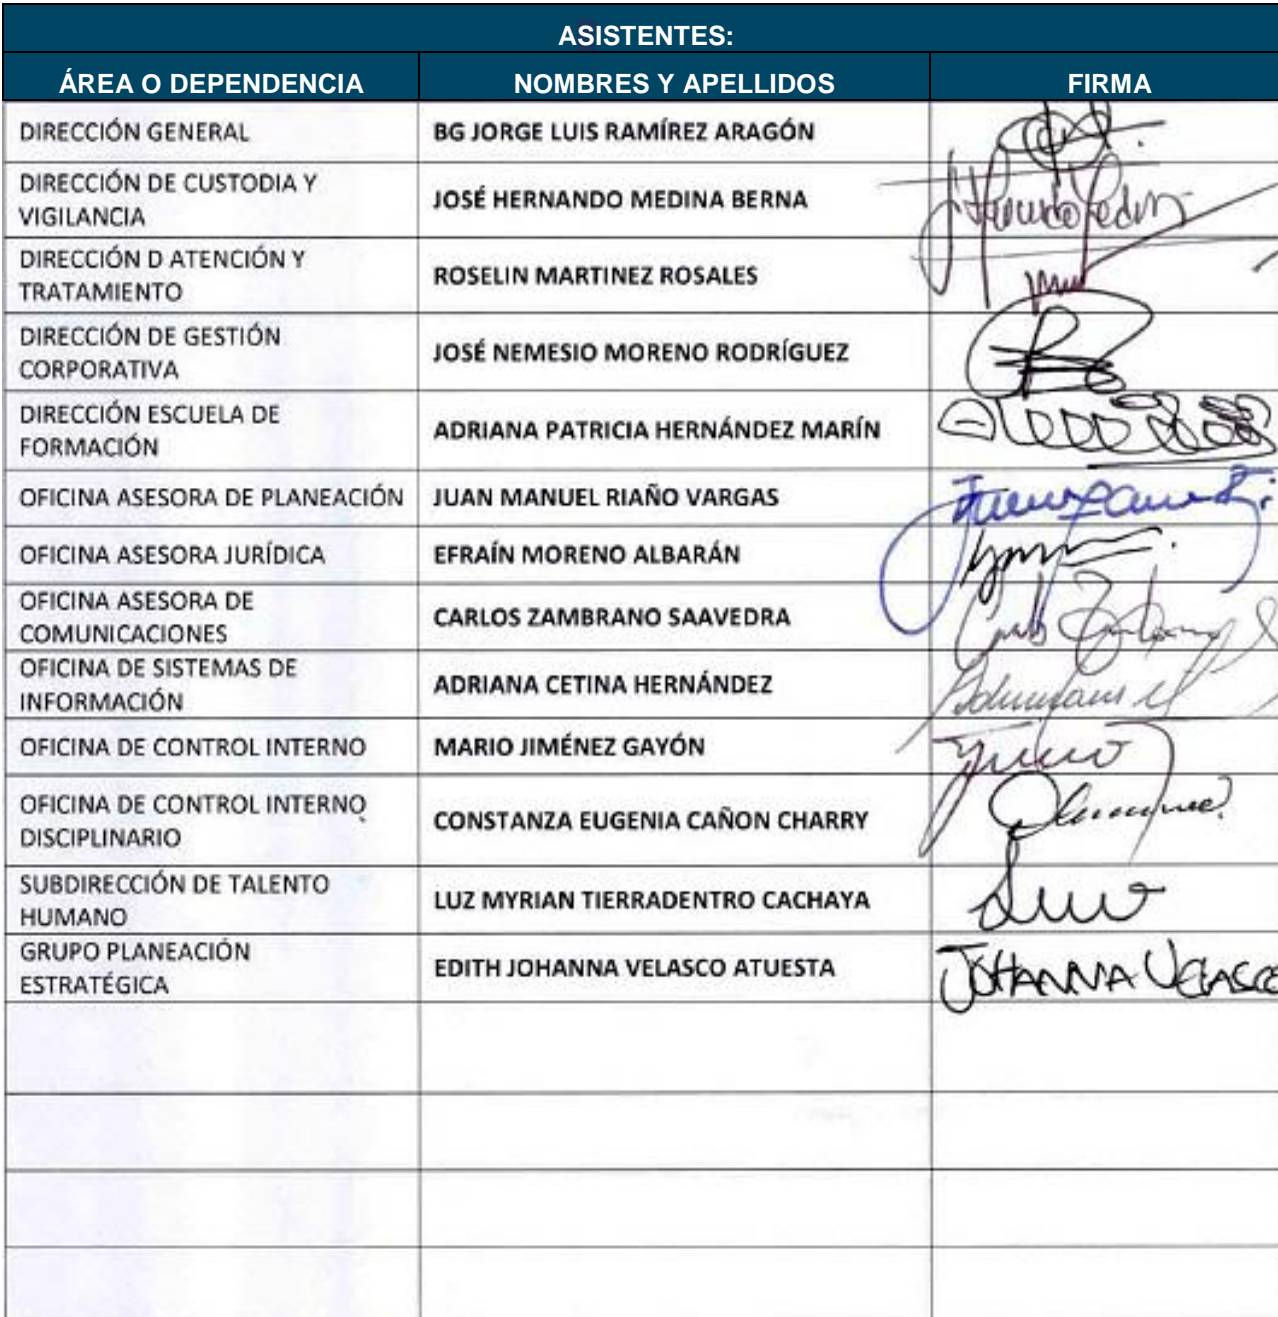 ASISTENTES:
ÁREA O DEPENDENCIA NOMBRES Y APELLIDOS FIRMA
DIRECCIÓN GENERAL BG JORGE LUIS RAMÍREZ ARAGÓN
DIRECCIÓN DE CUSTODIA Y
VIGILANCIA JOSÉ HERNANDO MEDINA BERNA
DIRECCIÓN D ATENCIÓN Y
TRATAMIENTO ROSELIN MARTINEZ ROSALES
DIRECCIÓN DE GESTIÓN
CORPORATIVA JOSÉ NEMESIO MORENO RODRÍGUEZ
DIRECCIÓN ESCUELA DE
FORMACIÓN ADRIANA PATRICIA HERNÁNDEZ MARÍN
OFICINA ASESORA DE PLANEACIÓN JUAN MANUEL RIAÑO VARGAS
OFICINA ASESORA JURÍDICA EFRAÍN MORENO ALBARÁN
OFICINA ASESORA DE
COMUNICACIONES CARLOS ZAMBRANO SAAVEDRA
OFICINA DE SISTEMAS DE
INFORMACIÓN ADRIANA CETINA HERNÁNDEZ
OFICINA DE CONTROL INTERNO MARIO JIMÉNEZ GAYÓN
OFICINA DE CONTROL INTERNO
DISCIPLINARIO CONSTANZA EUGENIA CAÑON CHARRY
SUBDIRECCIÓN DE TALENTO
HUMANO LUZ MYRIAN TIERRADENTRO CACHAYA
GRUPO PLANEACIÓN
ESTRATÉGICA EDITH JOHANNA VELASCO ATUESTA JOHANNA VELASCO